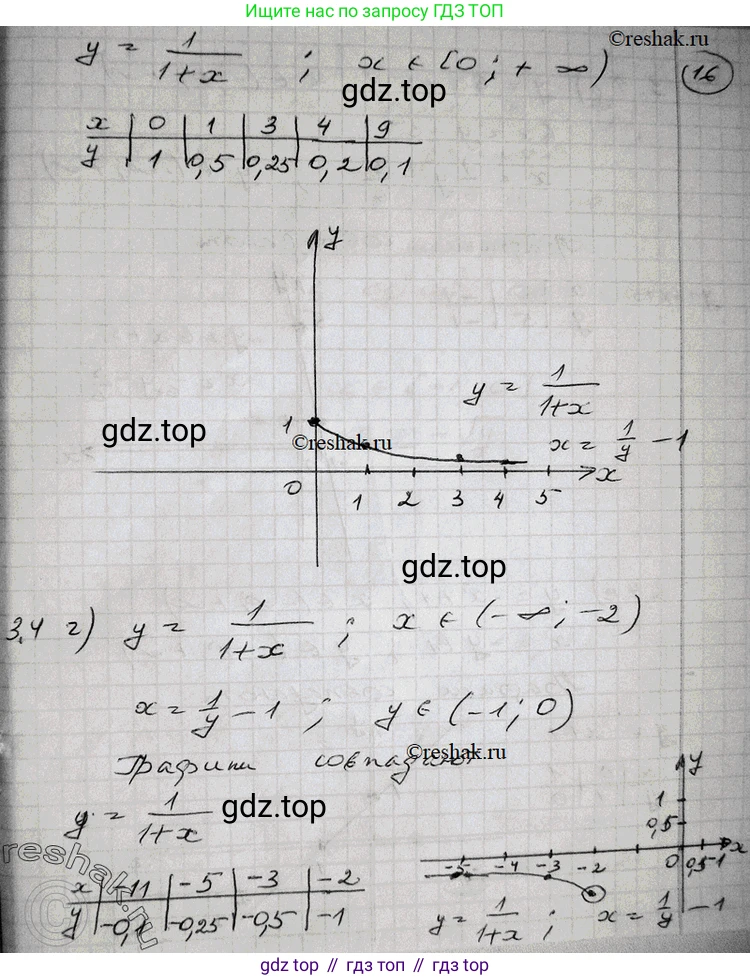 Ищите нас по запросу ГДЗ ТОП
©reshak.ru
y = 1/(1+x) ; x ∈ [0; +∞)
16
gdz.top
x | 0 | 1 | 3 | 4 | 9
y | 1 | 0,5 | 0,25 | 0,2 | 0,1
y
y = 1/(1+x)
1
gdz.top
©reshak.ru
x = 1/y − 1
0 1 2 3 4 5 x
gdz.top
3.4 г) y = 1/(1+x) ; x ∈ (−∞; −2)
x = 1/y − 1 ; y ∈ (−1; 0)
©reshak.ru
Графики совпадают
y = 1/(1+x)
gdz.top
y
1
0,5
-5 -4 -3 -2 0 0,5 1 x
©reshak.ru
x | -11 | -5 | -3 | -2
y | -0,1 | -0,25 | -0,5 | -1
y = 1/(1+x) ; x = 1/y − 1
gdz.top // гдз.топ // gdz.top // гдз.топ